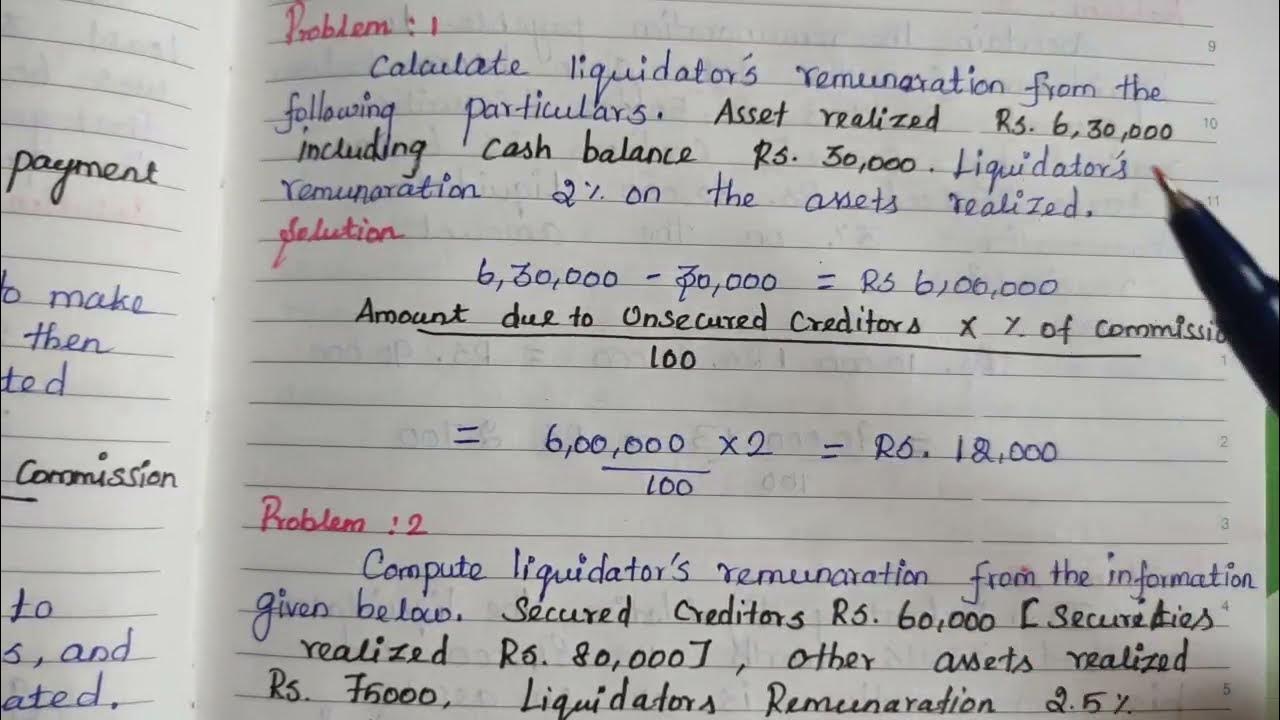 Problem : 1
Calculate liquidator's remunaration from the
following particulars. Asset realized Rs. 6,30,000
including cash balance Rs. 30,000. Liquidator's
remunaration 2% on the assets realized.
Solution
6,30,000 - 30,000 = RS 6,00,000
Amount due to Unsecured Creditors x % of commissio
100
= 6,00,000 x 2 = Rs. 12,000
100
Problem : 2
Compute liquidator's remunaration from the information
given below. Secured Creditors Rs. 60,000 [Securities
realized Rs. 80,000], Other assets realized
Rs. 75000, Liquidators Remunaration 2.5%
payment
o make
then
ted
Commission
to
s, and
ated.
9
10
11
1
2
3
4
5